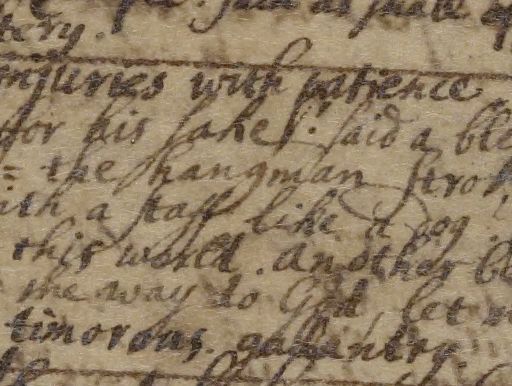 tery.
injuries with patience
for his sake. said a ble
= the hangman strok
ith a staff like a dog.
this world. another bl
me way to God let
timorous. gallantry